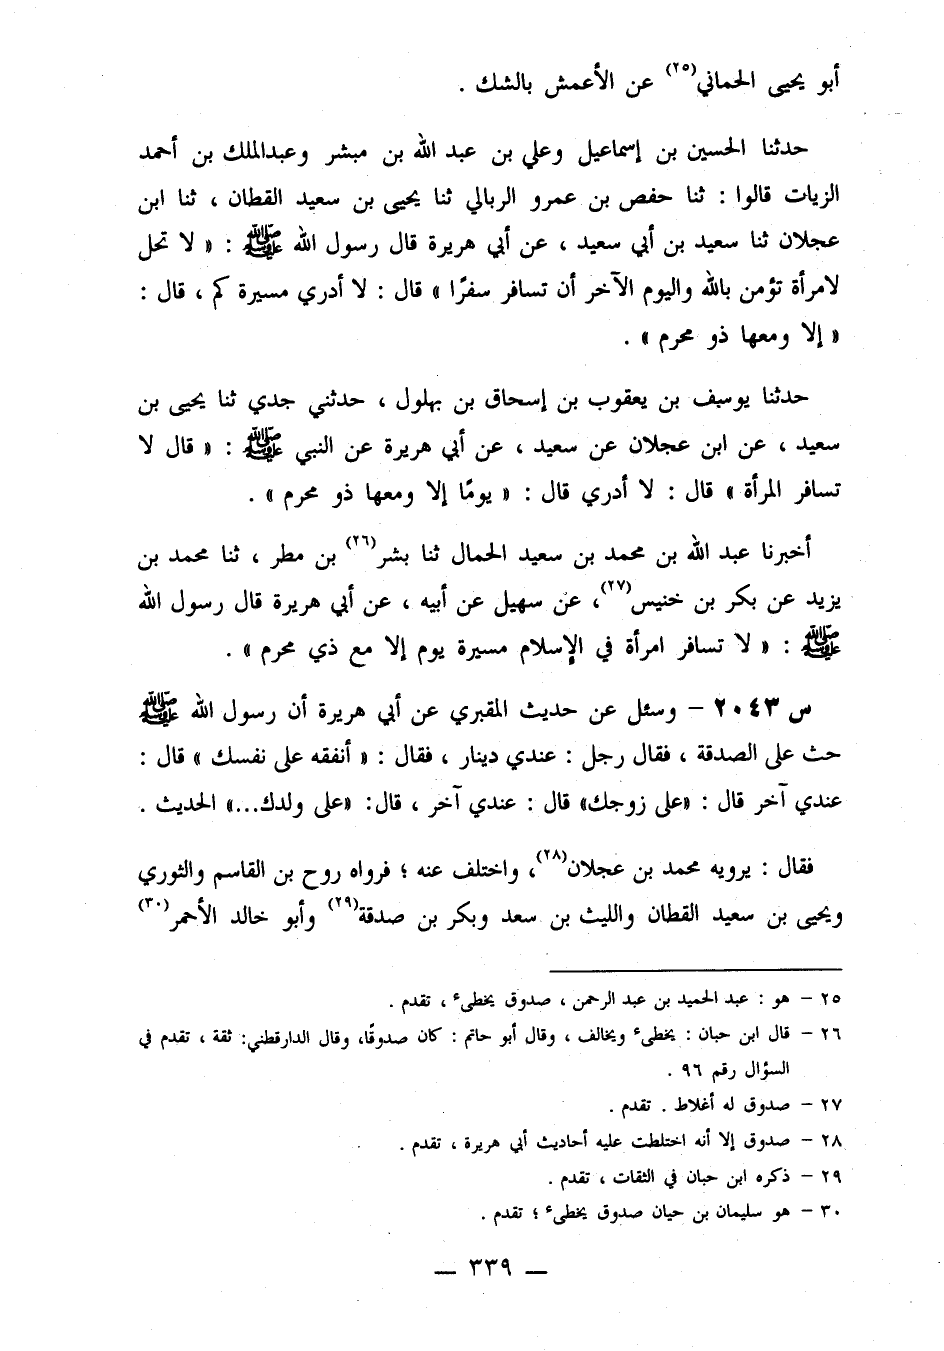 أبو يحيى الحماني(٢٥) عن الأعمش بالشك .
حدثنا الحسين بن إسماعيل وعلي بن عبد الله بن مبشر وعبدالملك بن أحمد
الزيات قالوا : ثنا حفص بن عمرو الربالي ثنا يحيى بن سعيد القطان ، ثنا ابن
عجلان ثنا سعيد بن أبي سعيد ، عن أبي هريرة قال رسول الله ﷺ : « لا تحل
لامرأة تؤمن بالله واليوم الآخر أن تسافر سفرًا » قال : لا أدري مسيرة كم ، قال :
« إلا ومعها ذو محرم » .
حدثنا يوسف بن يعقوب بن إسحاق بن بهلول ، حدثني جدي ثنا يحيى بن
سعيد ، عن ابن عجلان عن سعيد ، عن أبي هريرة عن النبي ﷺ : « قال لا
تسافر المرأة » قال : لا أدري قال : « يومًا إلا ومعها ذو محرم » .
أخبرنا عبد الله بن محمد بن سعيد الحمال ثنا بشر(٢٦) بن مطر ، ثنا محمد بن
يزيد عن بكر بن خنيس(٢٧)، عن سهيل عن أبيه ، عن أبي هريرة قال رسول الله
ﷺ : « لا تسافر امرأة في الإسلام مسيرة يوم إلا مع ذي محرم » .
س ٢٠٤٣ – وسئل عن حديث المقبري عن أبي هريرة أن رسول الله ﷺ
حث على الصدقة ، فقال رجل : عندي دينار ، فقال : « أنفقه على نفسك » قال :
عندي آخر قال : «على زوجك» قال : عندي آخر ، قال: «على ولدك...» الحديث .
فقال : يرويه محمد بن عجلان(٢٨)، واختلف عنه ؛ فرواه روح بن القاسم والثوري
ويحيى بن سعيد القطان والليث بن سعد وبكر بن صدقة(٢٩) وأبو خالد الأحمر(٣٠)
٢٥ – هو : عبد الحميد بن عبد الرحمن ، صدوق يخطىء ، تقدم .
٢٦ – قال ابن حبان : يخطىء ويخالف ، وقال أبو حاتم : كان صدوقًا، وقال الدارقطني: ثقة ، تقدم في
السؤال رقم ٩٦ .
٢٧ – صدوق له أغلاط . تقدم .
٢٨ – صدوق إلا أنه اختلطت عليه أحاديث أبي هريرة ، تقدم .
٢٩ – ذكره ابن حبان في الثقات ، تقدم .
٣٠ – هو سليمان بن حيان صدوق يخطىء ؛ تقدم .
— ٣٣٩ —